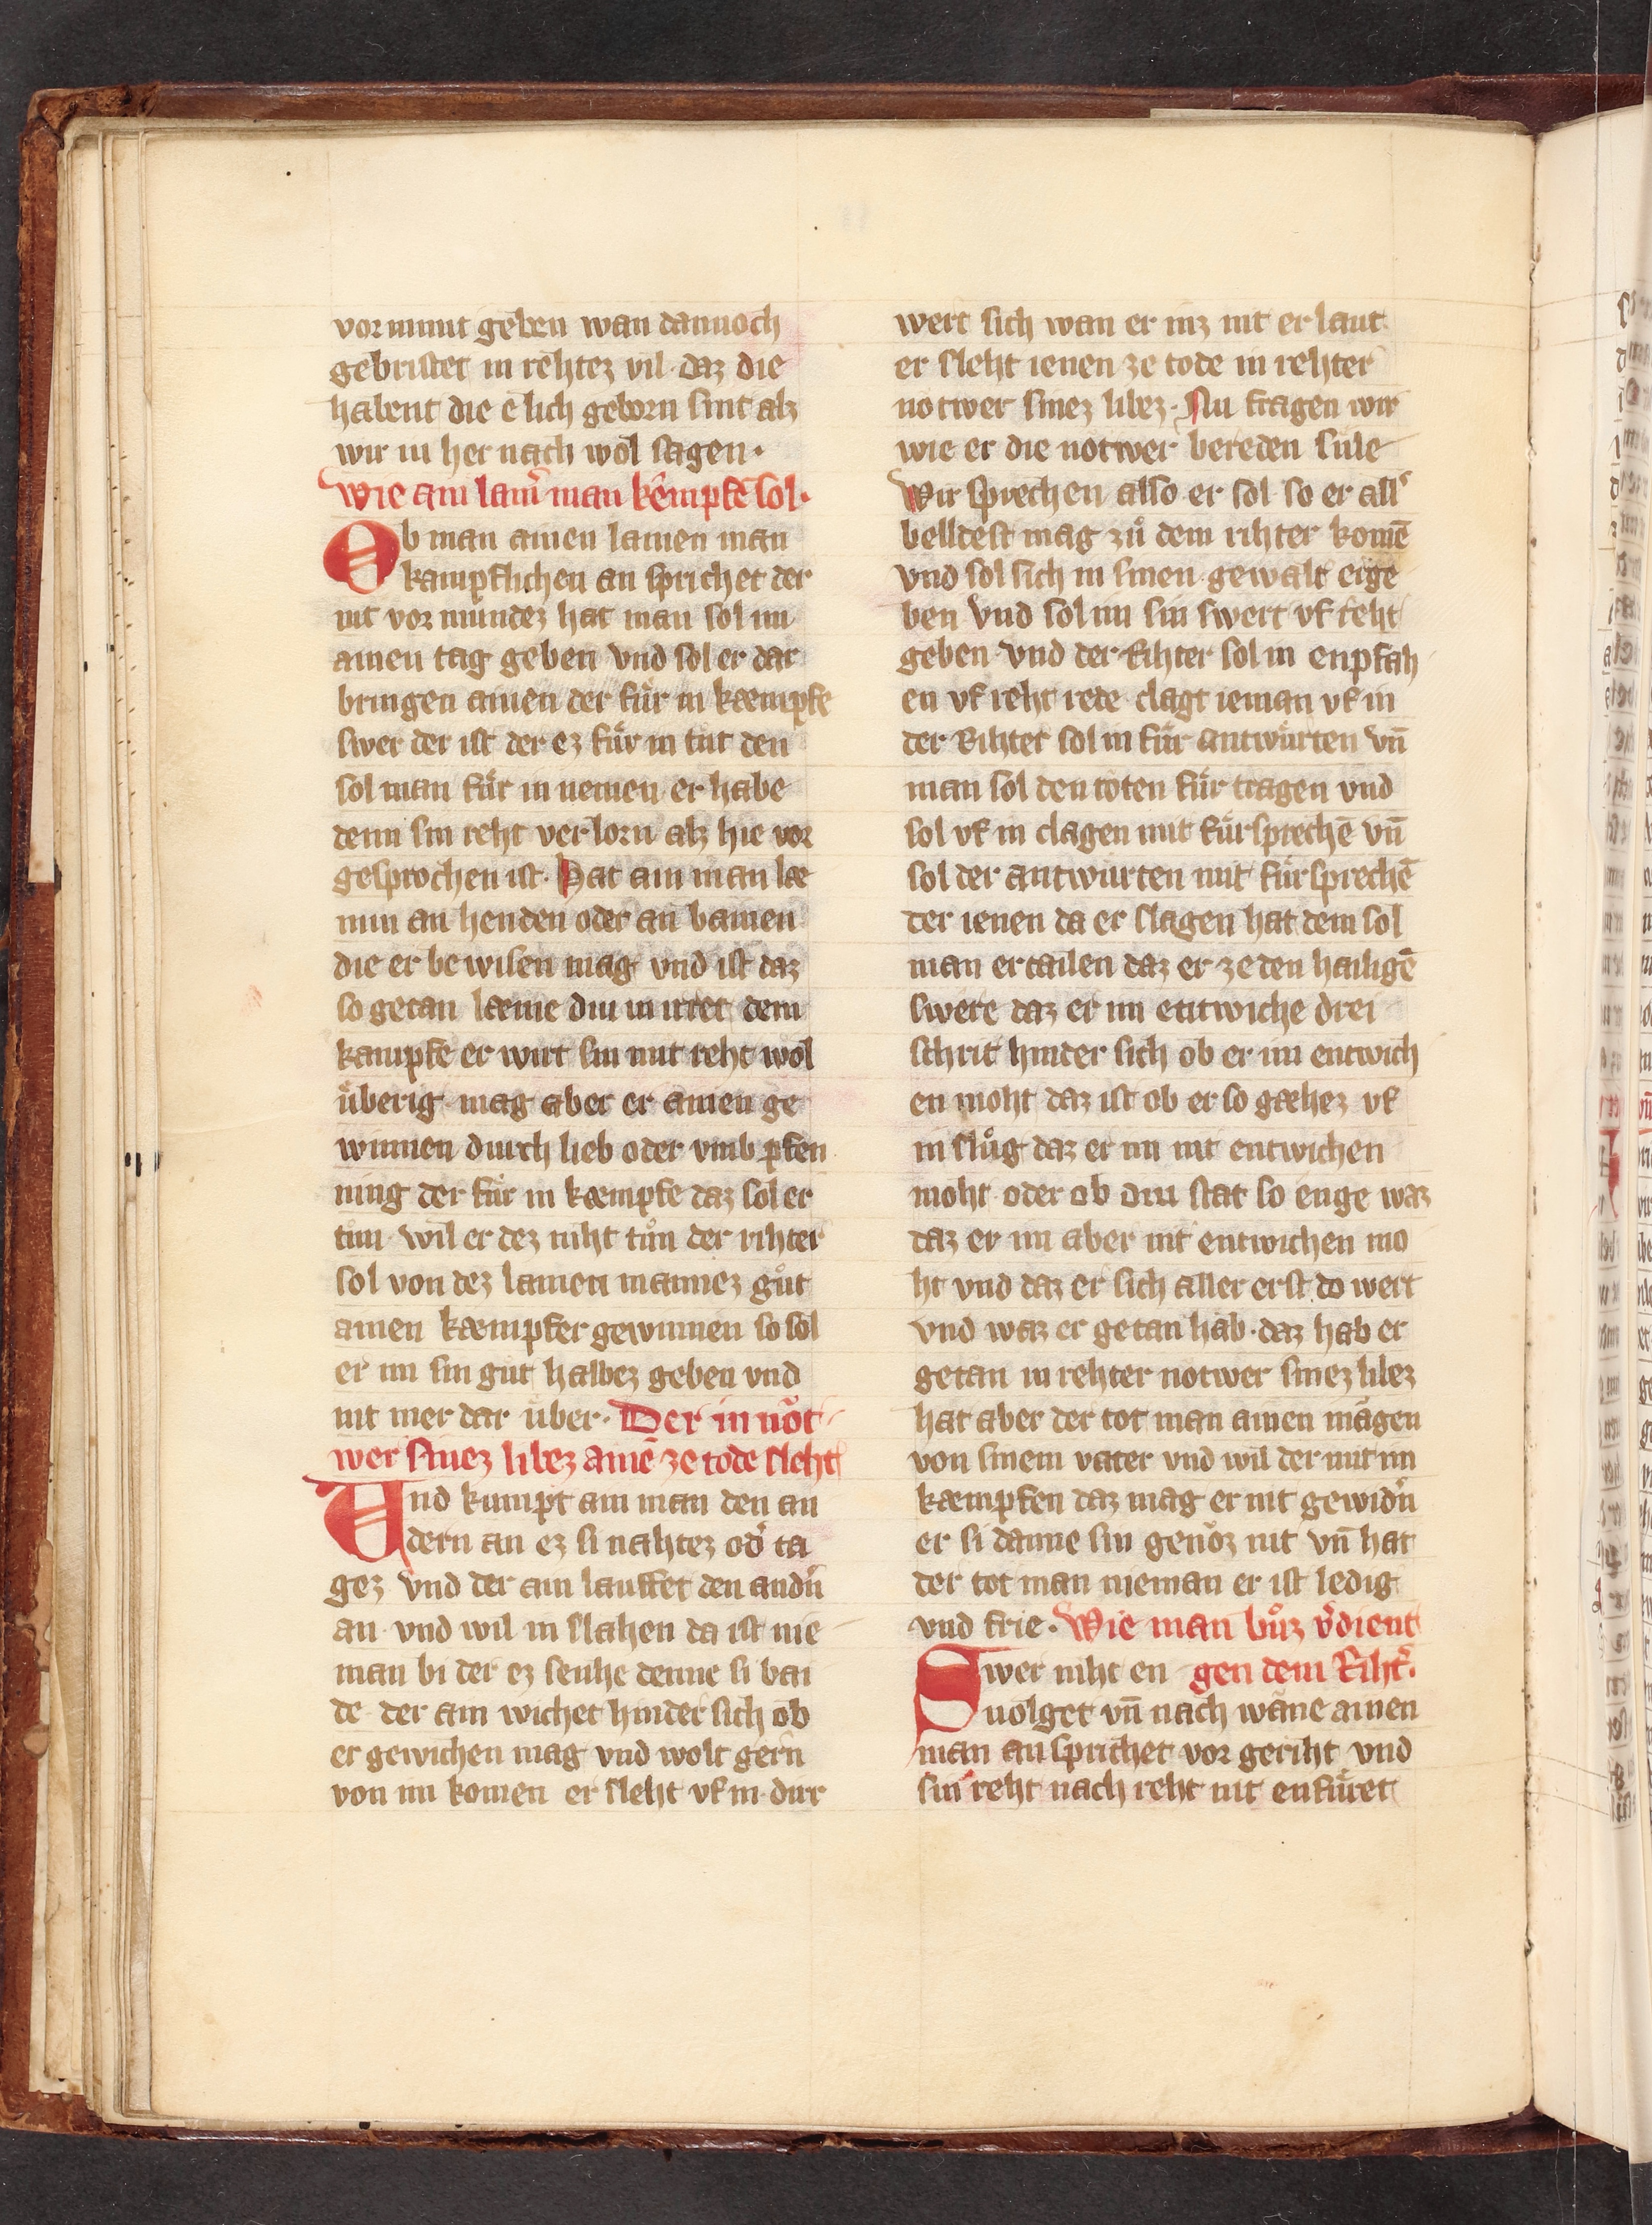 vor munt geben wan dannoch
gebristet in rehtez vil · daz die
habent die e lich geborn sint alz
wir iu her nach wol sagen ·
Wie ain lam̄ man kempfē sol ·
Ob man ainen lamen man
kampflichen an sprichet der
nit vor mundez hat man sol im
ainen tag geben vnd sol er dar
bringen ainen der fuͤr in kaempfe
swer der ist der ez fuͤr in tut den
sol man fuͤr in nemen er habe
denn sin reht verlorn alz hie vor
gesprochen ist · Hat ain man lae
min an henden oder an bainen
die er be wisen mag vnd ist daz
so getan laeme diu in irret dem
kampfe er wirt sin mit reht wol
uͤberig · mag aber er ainen ge
winnen durch lieb oder vmb pfen
ning der fuͤr in kaempfe daz sol er
tun wil er dez niht tuͦn der rihter
sol von dez lamen mannez guͦt
ainen kaempfer gewinnen so sol
er im sin gut halbez geben vnd
nit mer dar uber · Der in not
wer sinez libez ainē ze tode sleht
Und kumpt ain man den an
dern an ez si nahtez od' ta
gez vnd der ain lauffet den and'n
an vnd wil in slahen da ist nie
man bi der ez senhe denne si bai
de der ain wichet hinder sich ob
er gewichen mag vnd wolt gern
von im komen er sleht vf in dur
wert sich wan er inz nit er laut
er sleht ienen ze tode in rehter
notwer sinez libez · Nu fragen wir
wie er die notwer bereden sule
Wir sprechen also er sol so er all'
belldest mag zuͦ dem rihter komē
vnd sol sich in sinen gewalt erge
ben vnd sol im sin swert vf reht
geben vnd der Rihter sol in enpfah
en vf reht rede clagt ieman vf in
der Rihter sol in fuͤr antwurten vn̄
man sol den toten fuͤr tragen vnd
sol vf in clagen mit fuͤrsprechē vn̄
sol der antwurten mit fuͤrsprechē
der ienen da er slagen hat dem sol
man ertailen daz er ze den hailigē
swere daz er im entwiche drei
schrit hinder sich ob er im entwich
en moht daz ist ob er so gaehez vf
in sluͦg daz er im nit entwichen
moht oder ob diu stat so enge waz
daz er im aber nit entwichen mo
ht vnd daz er sich aller erst do wert
vnd waz er getan hab · daz hab er
getan in rehter notwer sinez libez
hat aber der tot man ainen magen
von sinem vater vnd wil der mit im
kaempfen daz mag er nit gewid'n
er si danne sin genoz nit vn̄ hat
der tot man nieman er ist ledig
vnd frie · Wie man buͦz v'dient
Swer niht en gen dem Riht'.
uolget vn̄ nach wane ainen
man an sprichet vor geriht vnd
sin reht nach reht nit enfuͤret